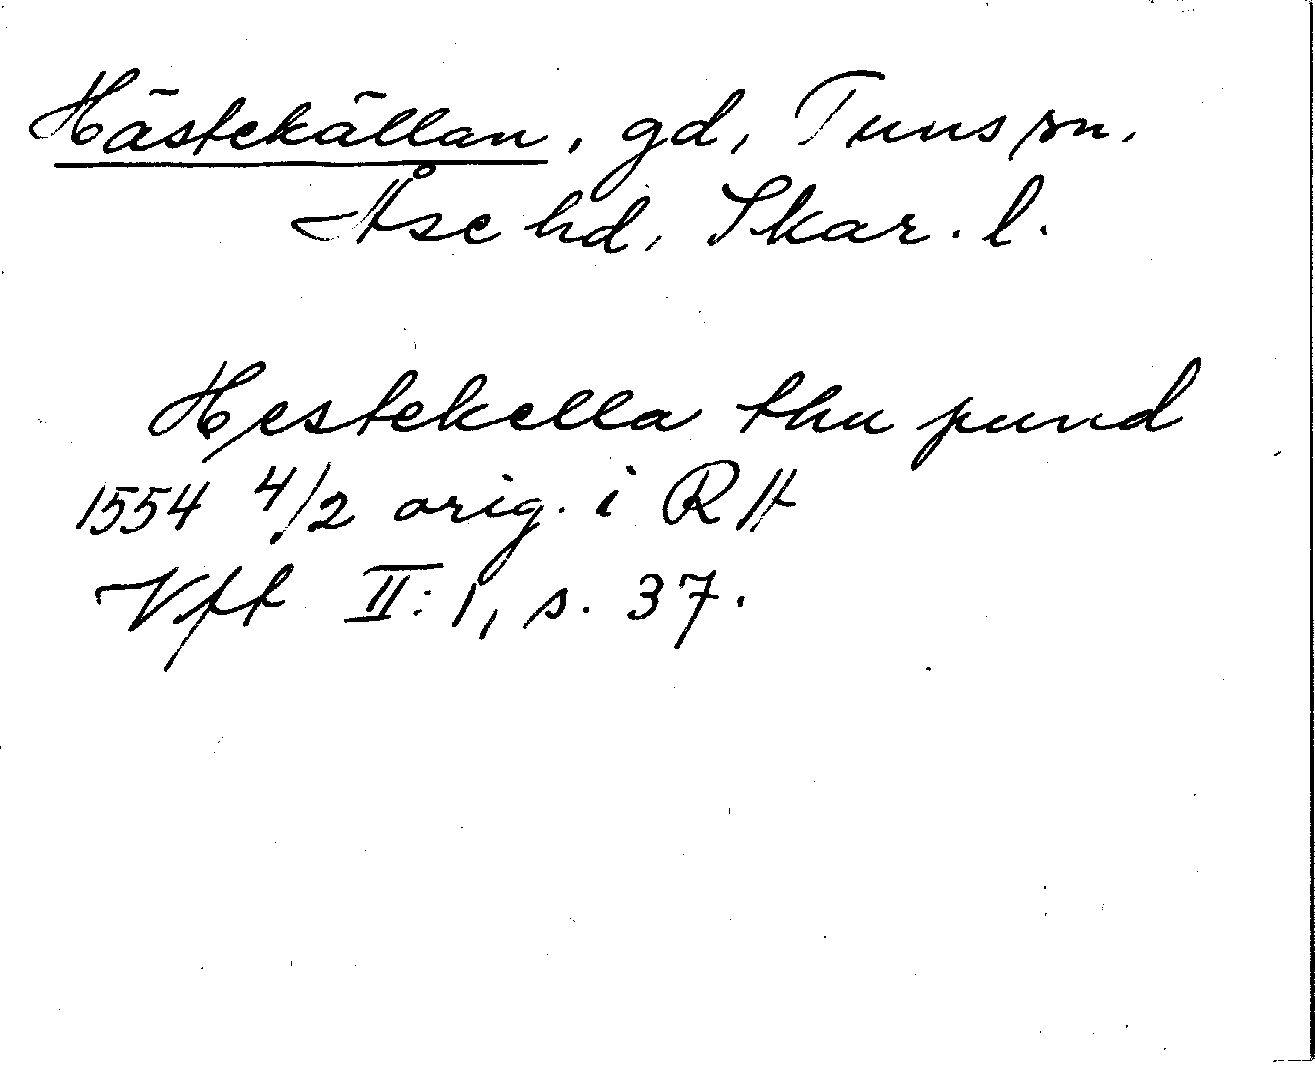 Hästekällan, gd, Tuns sn,
Åse hd, Skar. l.
Hęstekella thu pund
1554 4/2 orig. i RA
Vft II: 1, s. 37.